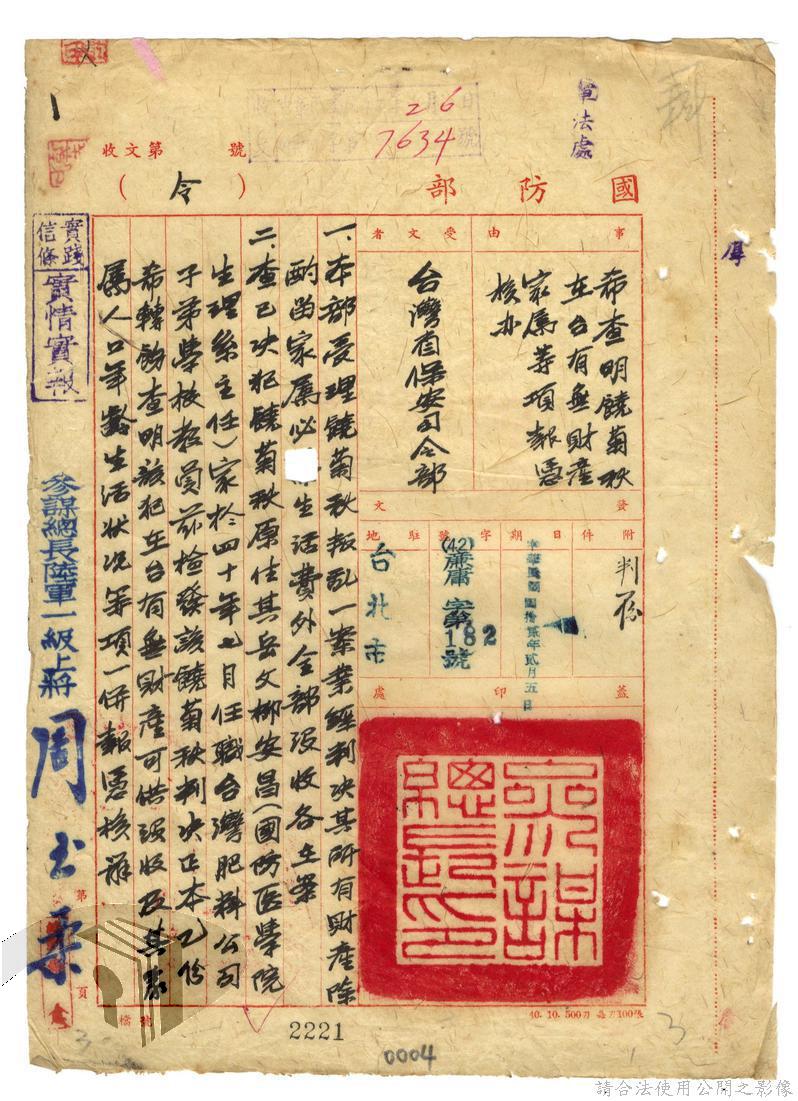 軍法處
26
7634
收文第 號
國防部
(令)
事由
希查明饒菊秋
在台有無財產
家属等項報憑
核办
受文者
台灣省保安司令部
發文
附件
判份
日期
中華民國四拾貳年貳月五日
字號
(42)廉庸字第182號
駐地
台北市
蓋印處
參謀總長之印
一、本部受理饒菊秋叛乱一案業經判决其所有財產除
酌留家属必 生活費外全部沒收各在案
二、查已决犯饒菊秋原住其岳父柳安昌(國防医學院
生理系主任)家於四十年七月任職台灣肥料公司
子弟學校教員茲檢發該饒菊秋判决正本乙份
希轉飭查明該犯在台有無財產可供沒收及其家
属人口年齡生活狀況等項一併報憑核辦
實踐信條
實情實報
參謀總長陸軍一級上將
周至柔
第 頁
檔號
2221
0004
40. 10. 500刀 每刀100張
3
3
請合法使用公開之影像